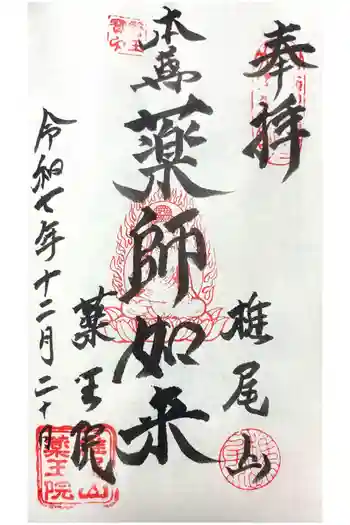 奉拝
椎尾山
本尊 薬師如来
薬王院
令和七年十二月二十日
椎尾山
薬王院